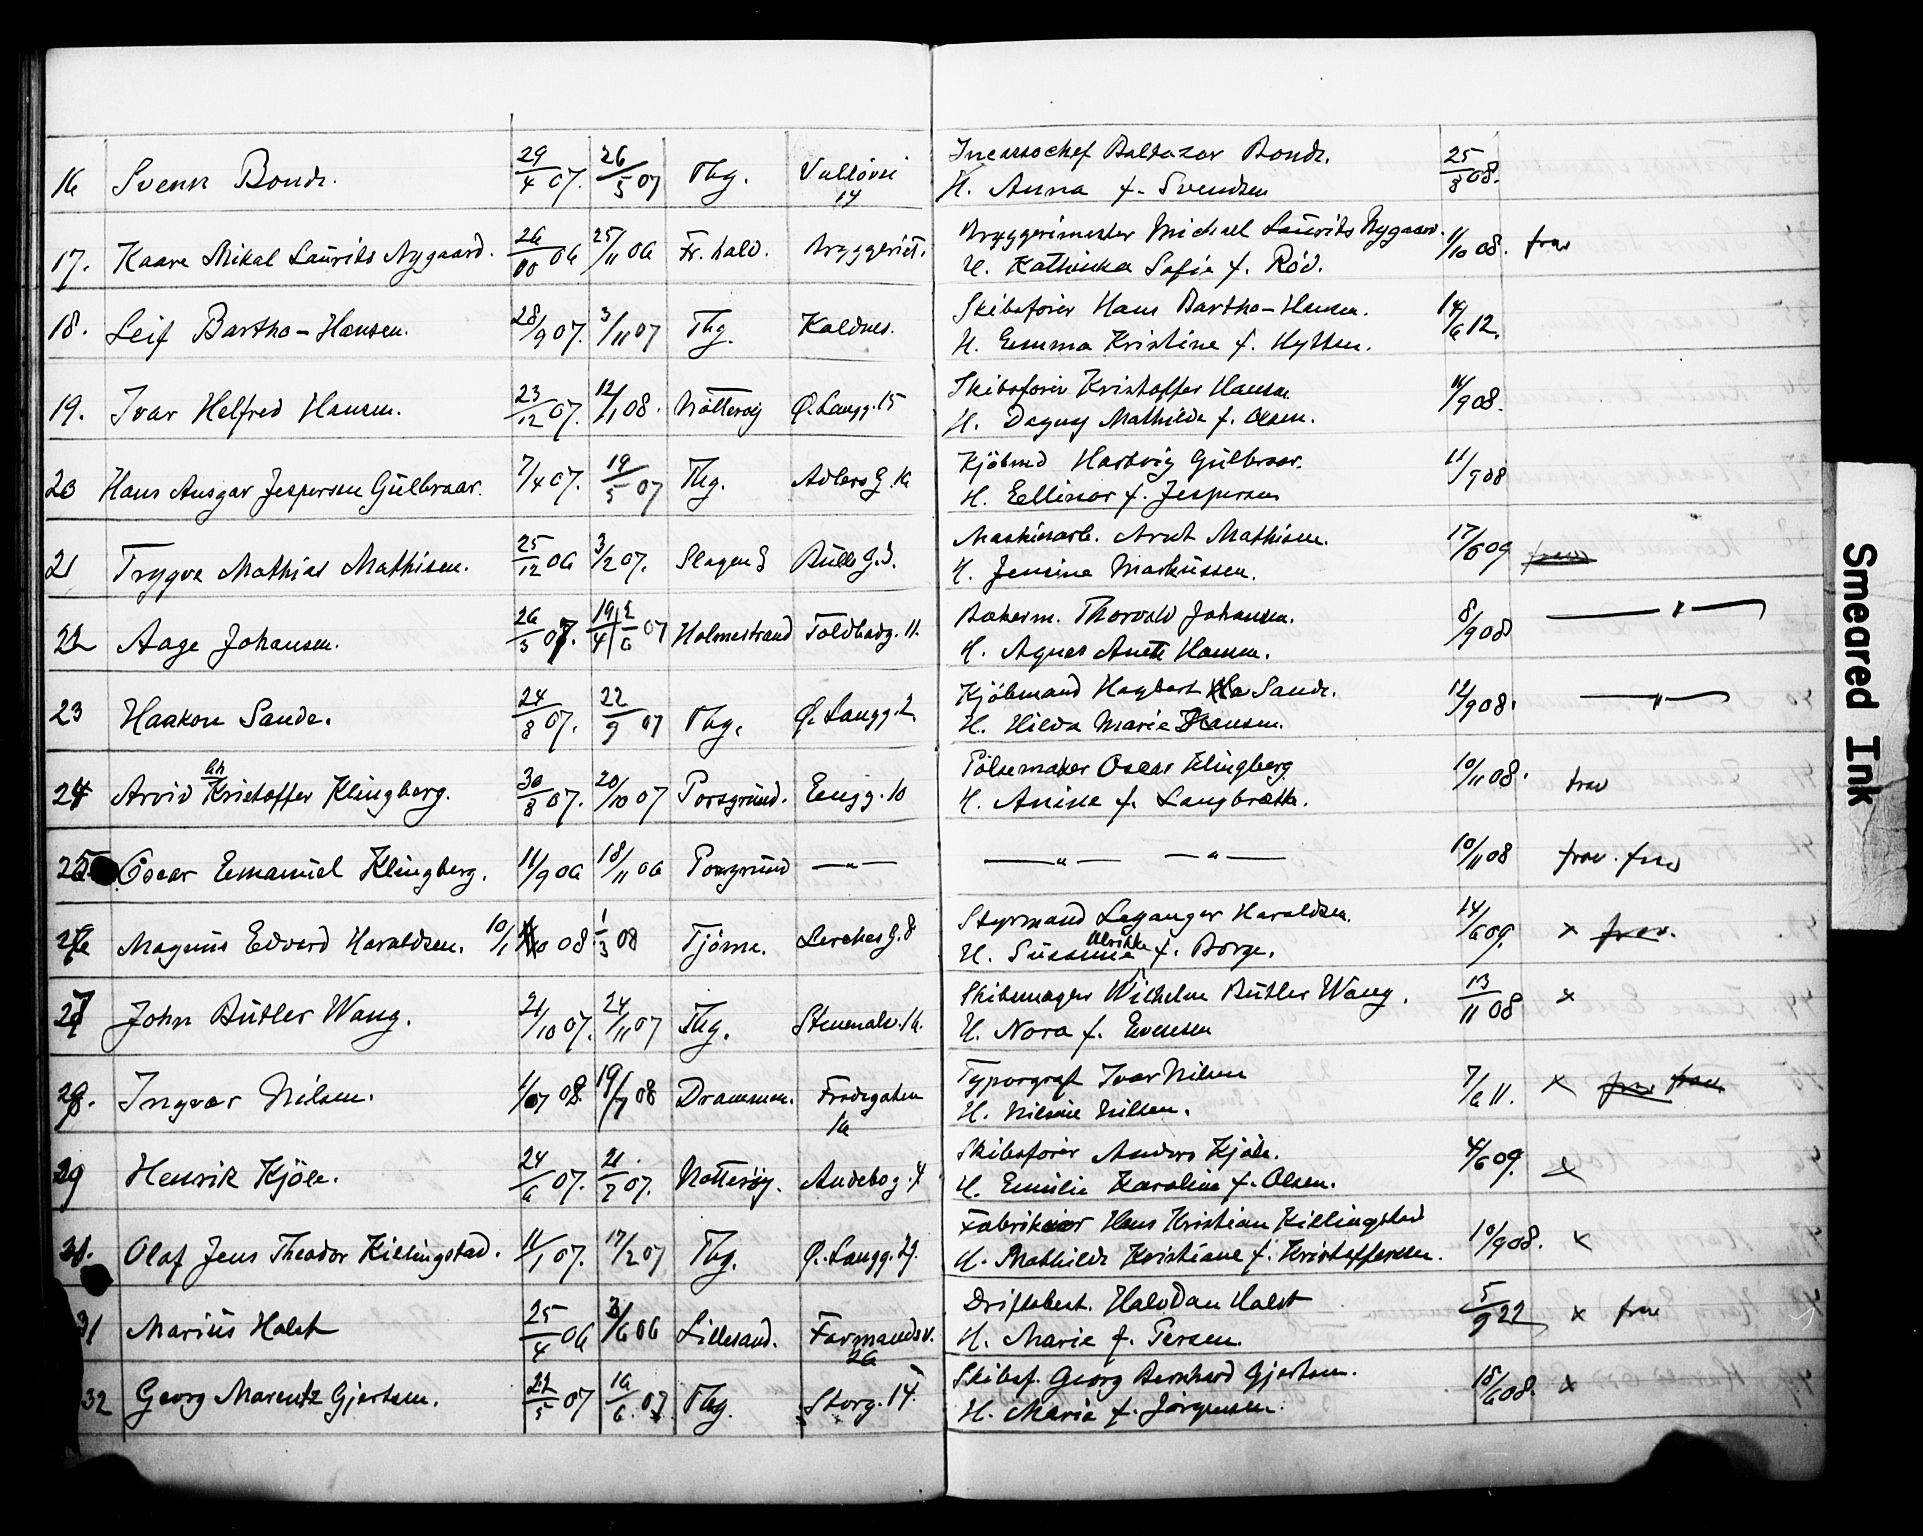 16 Svenn Bonde. 29/4 07. 26/5 07 Tbg. Vullövei 14 Incassochef Baltazar Bonde. 25/8 08.
H. Anna f. Svendsen
17. Kaare Mikal Laurits Nygaard. 26/10 06 25/11 06 Fr. hald. Bryggeriet. Bryggerimester Michael Laurits Nygaard. 1/10 08. frav
H. Kathinka Sofie f. Röd.
18. Leif Bartho-Hansen. 28/9 07. 3/11 07 Tbg. Kaldnes. Skibsförer Hans Bartho-Hansen. 14/6 12.
H. Emma Kristine f. Hytten.
19. Ivar Helfred Hansen. 23/12 07. 12/1 08. Nötteröy Ø. Langg. 15 Skibsförer Kristoffer Hansen
H. Dagny Mathilde f. Olsen. 11/9 08.
20 Hans Ansgar Jespersen Gulbraar. 7/4 07. 19/5 07 Tbg. Adlers G. 16 Kjöbmd Hartvig Gulbraar. 11/9 08
H. Ellinor f. Jespersen
21 Trygve Mathias Mathisen. 25/12 06 3/2 07. Slagen S Bulls G. 3. Maskinarb. Arnt Mathisen. 17/6 09 frav
H. Jensine Markussen.
22 Aage Johansen. 26/3 07. 19/4 2/6 07 Holmestrand Toldbodg. 11. Bakerm. Thorvald Johansen. 8/9 08 — " —
H. Agnes Anette Hansen.
23 Haakon Sande. 24/8 07. 22/9 07 Tbg. Ø. Langg. 2 Kjöbmand Hagbart Sande. 12/9 08. — " —
H. Hilda Marie Hansen.
24 Arvid Kristoffer Klingberg. 30/8 07. 20/10 07 Porsgrund. Engg. 10 Pölsemaker Oscar Klingberg 10/11 08. frav
H. Anine f. Langbrætte.
25 Oscar Emanuel Klingberg. 11/9 06 18/11 06 Porsgrund — " — — " — — " — 10/11 08 frav. frav
26 Magnus Edvard Haraldsen. 10/1 08 1/3 08 Tjöme. Lerches G. 8 Styrmand Leganger Haraldsen. 14/6 09. x frav.
H. Susanne Ulrikke f. Borge.
27 John Butler Wang. 21/10 07. 24/11 07 Tbg. Stenmalv. 16. Skibsmægler Wilhelm Butler Wang. 13/11 08 x
H. Nora f. Evensen
28. Ingvar Nilsen. 08. 19/7 08 Drammen. Frodegaten 16 Typograf Ivar Nilsen 7/6 11. x frav frav
H. Nilsen.
29 Henrik Kjöle. 24/6 07. 21/7 07. Nötteröy. Andebog. 4 Skibsförer Anders Kjöle. 4/6 09. x
H. Emilie Karoline f. Olsen.
30. Olaf Jens Theodor Killingstad. 11/1 07. 17/2 07 Tbg. Ø. Langg. 29. Fabrikeier Hans Kristian Killingstad 10/9 08. x
H. Mathilde Kristiane f. Kristoffersen.
31 Marius Holst 25/4 06 3/6 06 Lillesand. Farmandsv. 26 Driftsbest. Halvdan Holst 5/9 22 x frav
H. Marie f. Persen.
32 Georg Marentz Gjertsen. 22/5 07 16/6. 07. Tbg. Storg. 14. Skibsf. Georg Bernhard Gjertsen. 18/6 08. x
H. Marie f. Jörgensen.
Smeared Ink